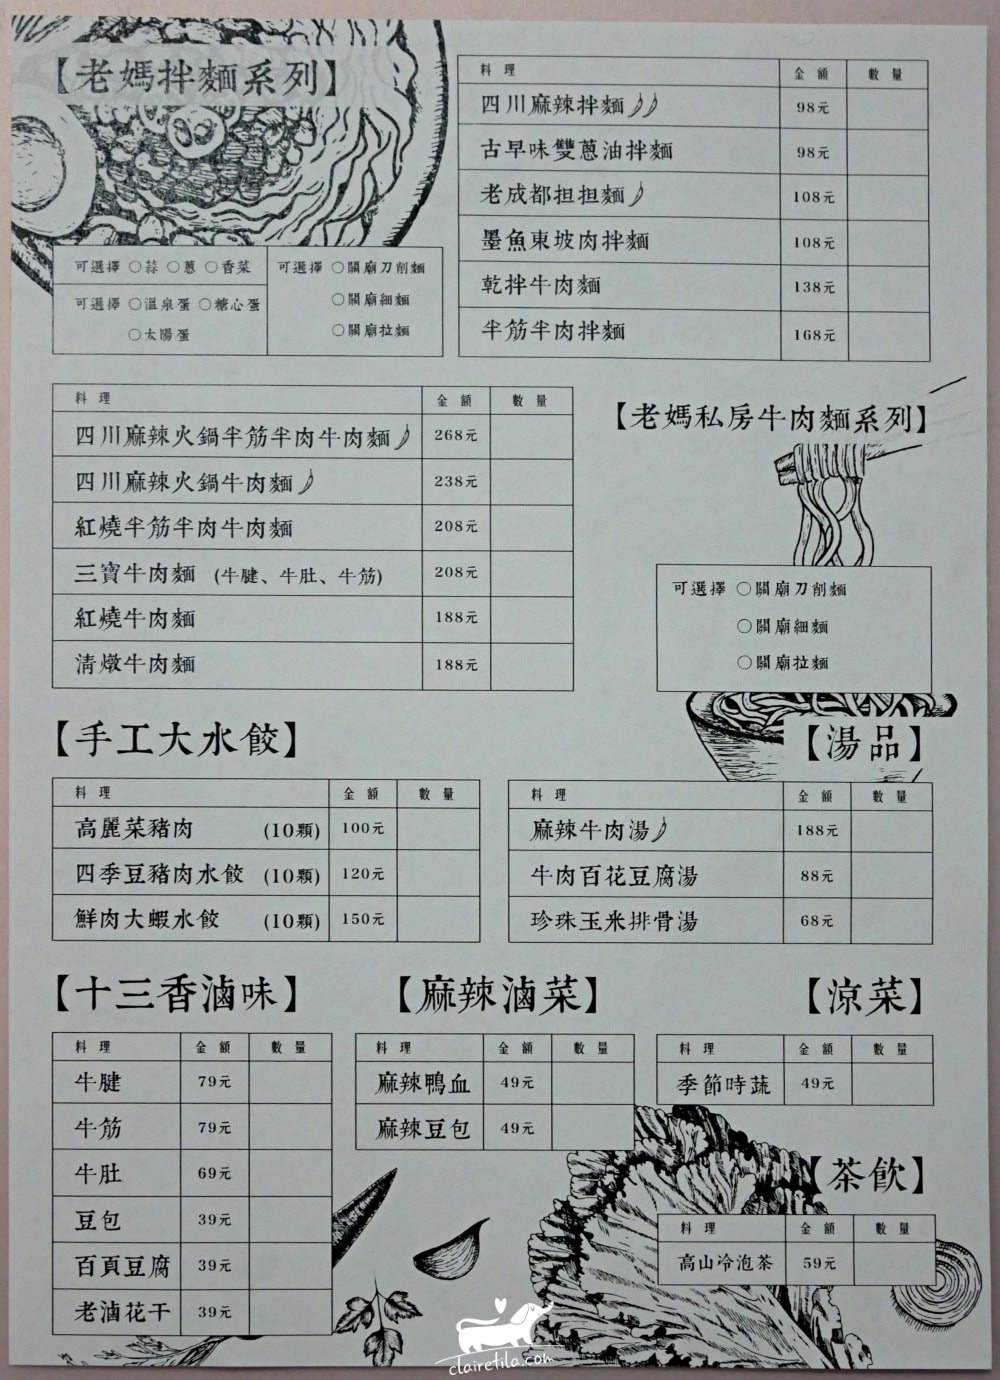 【老媽拌麵系列】
可選擇 ○蒜 ○蔥 ○香菜
可選擇 ○溫泉蛋 ○糖心蛋
○太陽蛋
可選擇 ○關廟刀削麵
○關廟細麵
○關廟拉麵
料理 金額 數量
四川麻辣拌麵 98元
古早味雙蔥油拌麵 98元
老成都担担麵 108元
墨魚東坡肉拌麵 108元
乾拌牛肉麵 138元
半筋半肉拌麵 168元
【老媽私房牛肉麵系列】
料理 金額 數量
四川麻辣火鍋半筋半肉牛肉麵 268元
四川麻辣火鍋牛肉麵 238元
紅燒半筋半肉牛肉麵 208元
三寶牛肉麵 (牛腱、牛肚、牛筋) 208元
紅燒牛肉麵 188元
清燉牛肉麵 188元
可選擇 ○關廟刀削麵
○關廟細麵
○關廟拉麵
【手工大水餃】
料理 金額 數量
高麗菜豬肉 (10顆) 100元
四季豆豬肉水餃 (10顆) 120元
鮮肉大蝦水餃 (10顆) 150元
【湯品】
料理 金額 數量
麻辣牛肉湯 188元
牛肉百花豆腐湯 88元
珍珠玉米排骨湯 68元
【十三香滷味】
料理 金額 數量
牛腱 79元
牛筋 79元
牛肚 69元
豆包 39元
百頁豆腐 39元
老滷花干 39元
【麻辣滷菜】
料理 金額 數量
麻辣鴨血 49元
麻辣豆包 49元
【涼菜】
料理 金額 數量
季節時蔬 49元
【茶飲】
料理 金額 數量
高山冷泡茶 59元
clairetila.com